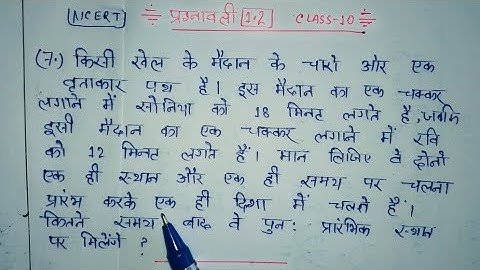 NCERT प्रश्नावली 1.2 CLASS-10
(7.) किसी खेल के मैदान के चारो ओर एक
वृताकार पथ है। इस मैदान का एक चक्कर
लगाने में सोनिया को 18 मिनट लगते है, जबकि
इसी मैदान का एक चक्कर लगाने में रवि
को 12 मिनट लगते हैं। मान लिजिए वे दोनो
एक ही स्थान और एक ही समय पर चलना
प्रारंभ करके एक ही दिशा में चलते हैं।
कितने समय बाद वे पुनः प्रारंभिक स्थान
पर मिलेंगे ?